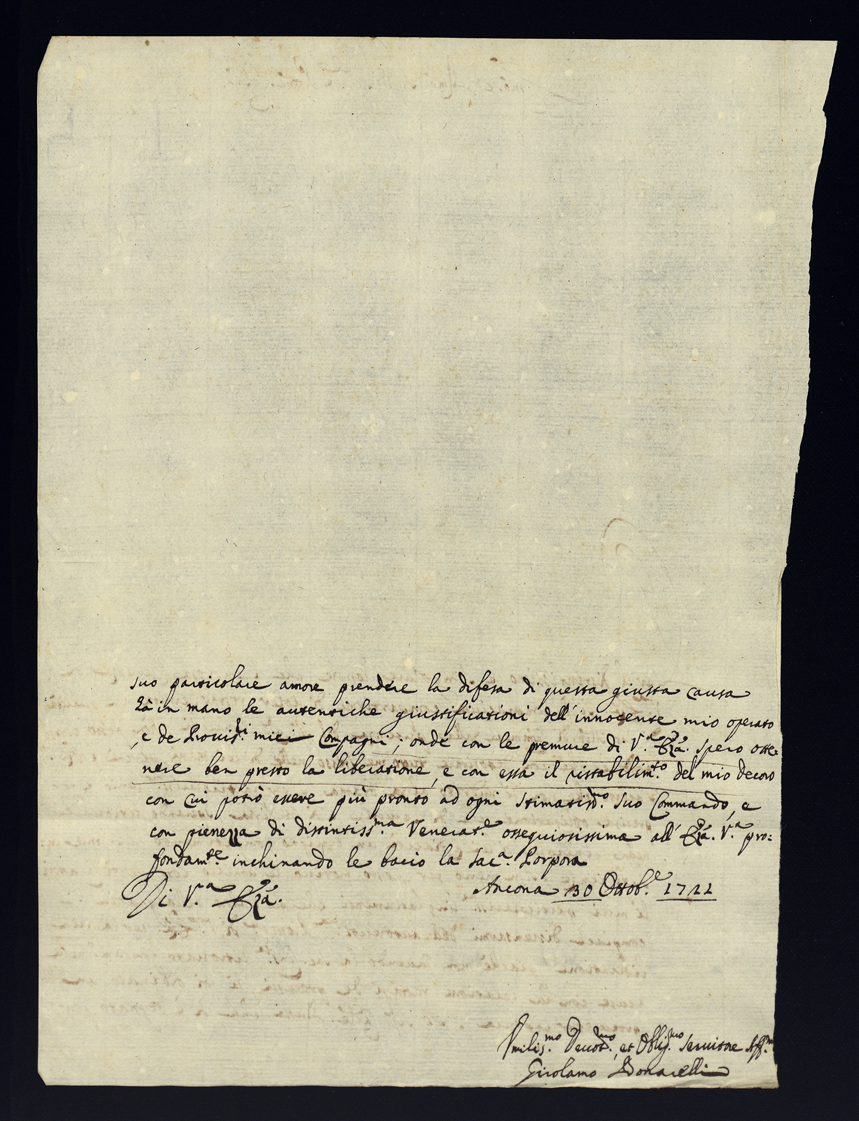 suo particolare amore prendere la difesa di questa giusta causa
in mano le autentiche giustificazioni dell'innocente mio operato
, e de miei Compagni; onde con le premure di V.ª Spero otte-
nere ben presto la liberazione, e con essa il ristabilim.to del mio decoro
con cui potrò essere più pronto ad ogni stimatiss.mo suo Commando, e
con pienezza di distintiss.ma Venerat.e ossequiosissima all' V.ª pro:
fondam.te inchinando le bacio la Sac.ª Porpora
Di V.ª Ancona 30 Ottob.e 1722
Umilis.mo Devot.mo, et Oblig.mo Servitore Aff.
Girolamo Bonarelli